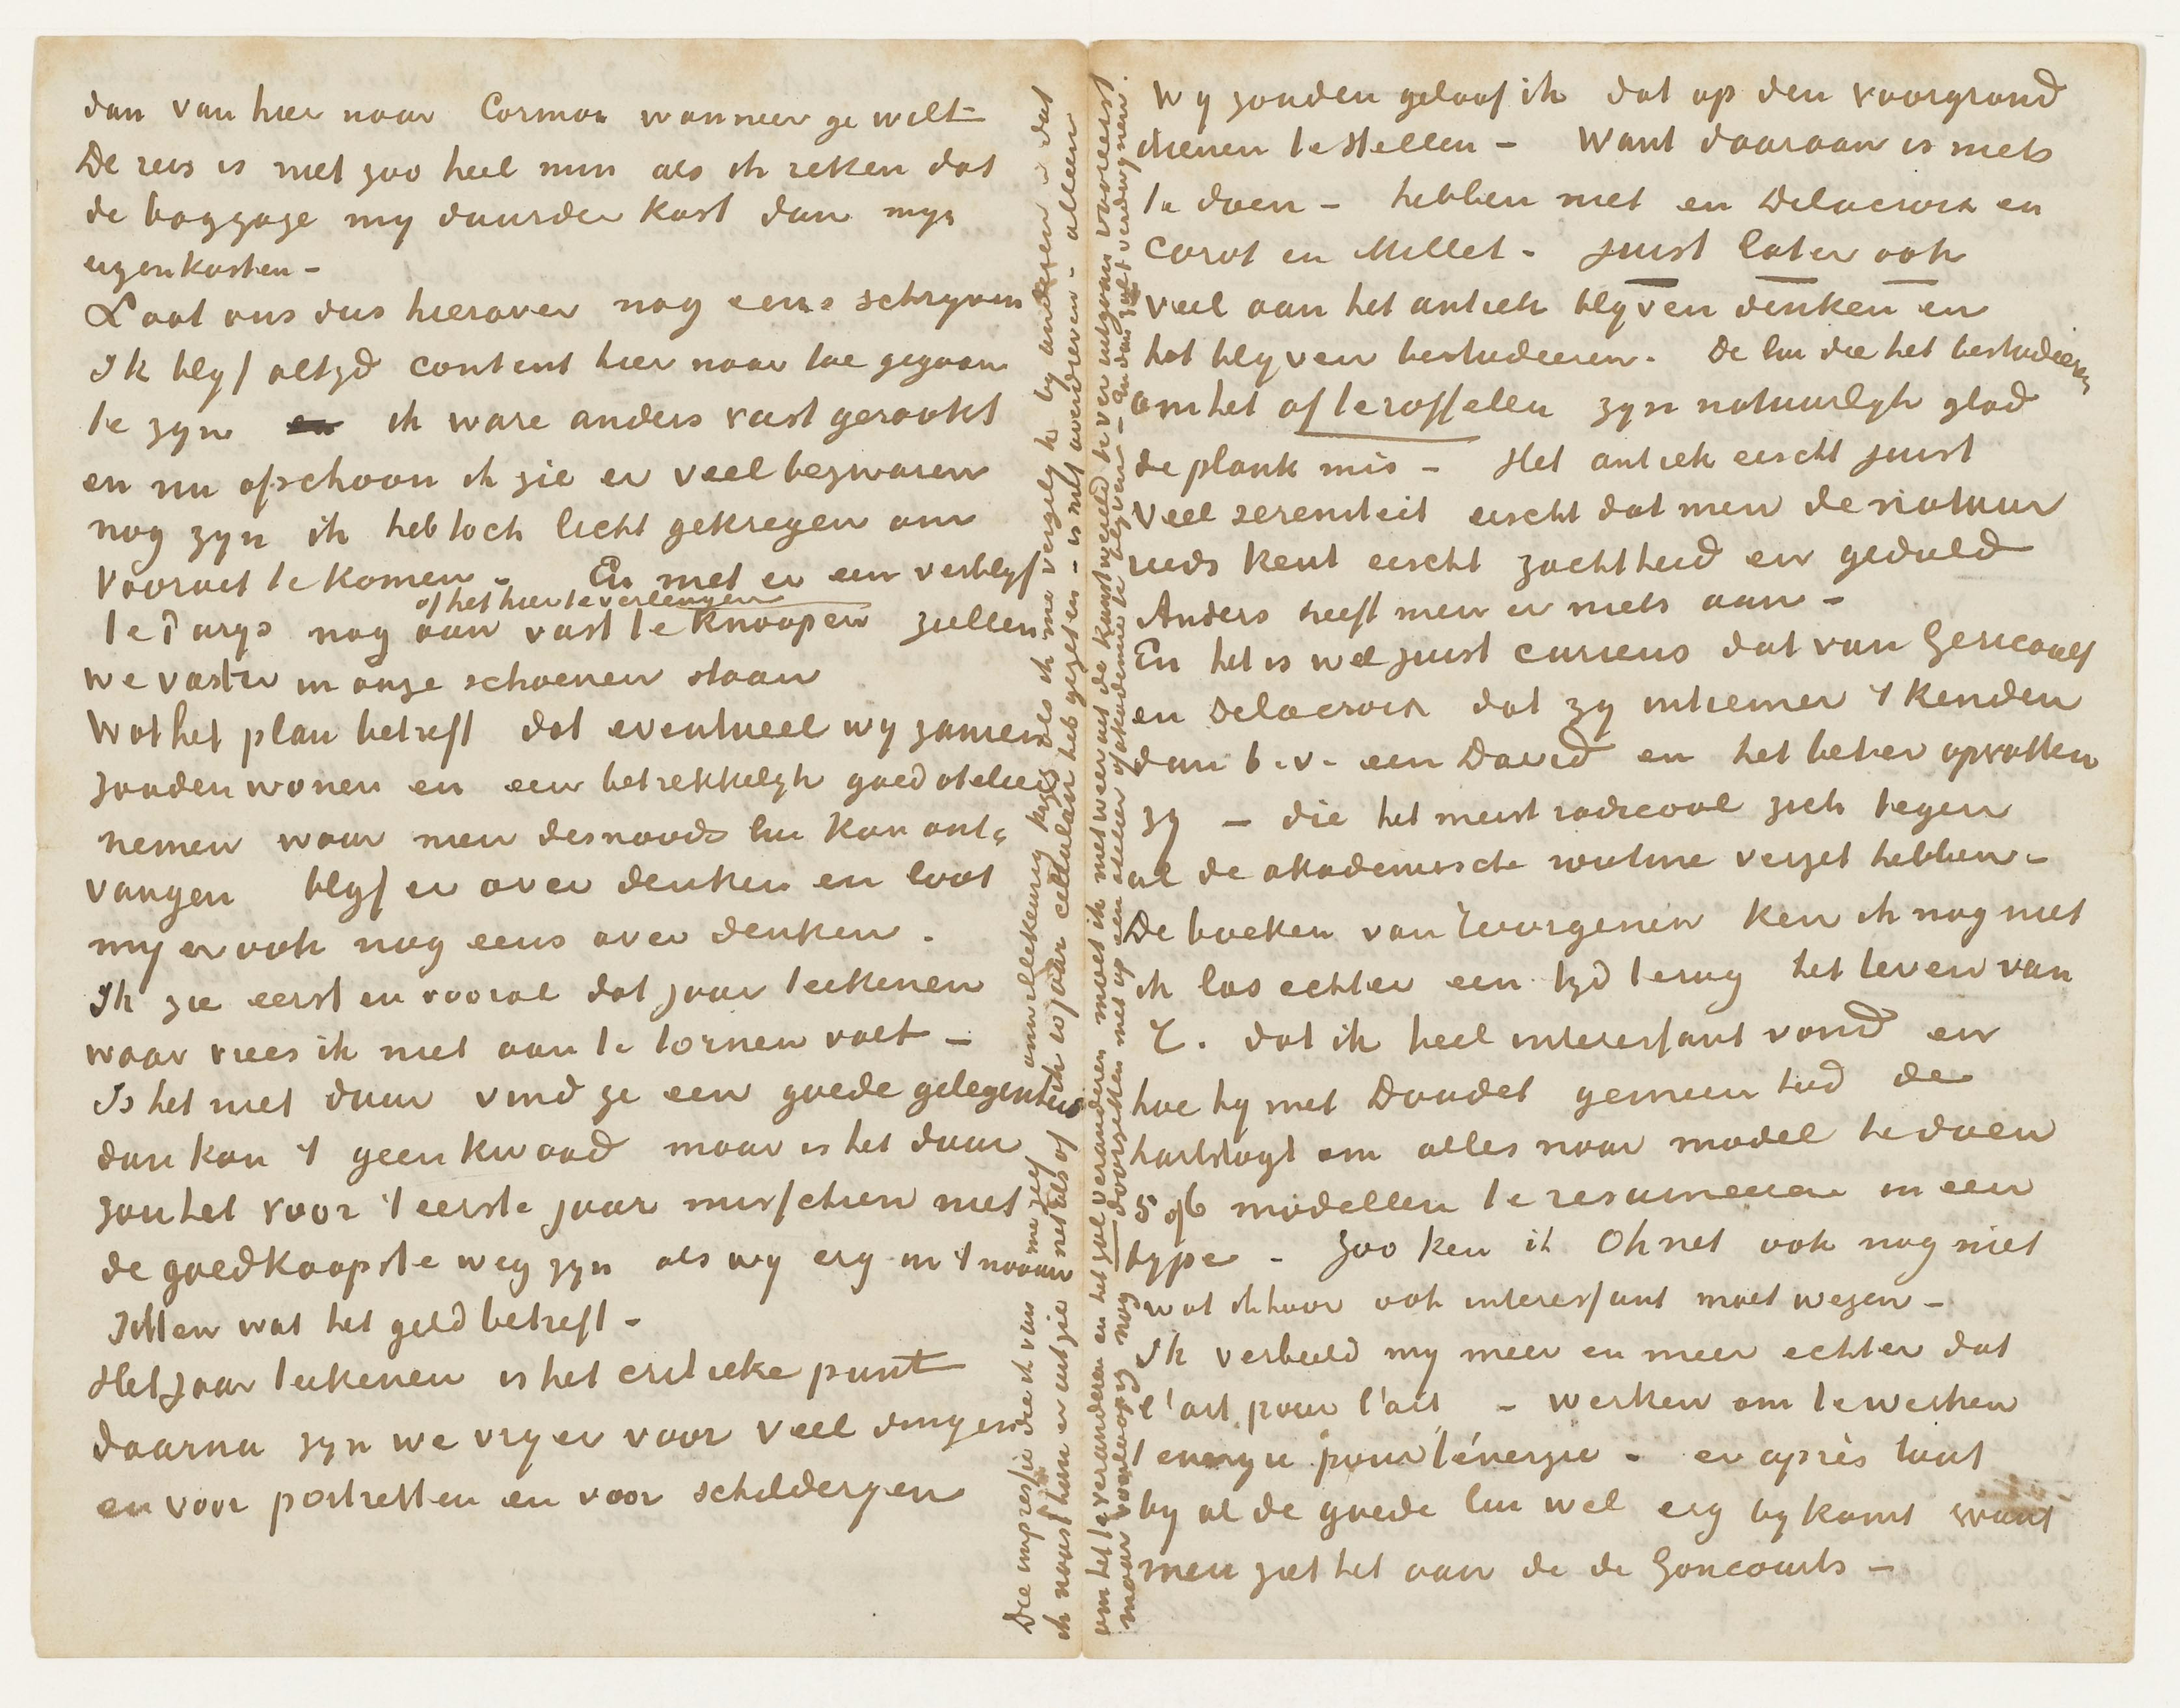 dan van hier naar Cormon wanneer ge wilt
De reis is niet zoo heel min als ik reken dat
de baggage my duurder kost dan myn
eigen kosten –
Laat ons dus hierover nog eens schryven
Ik blyf altyd content hier naar toe gegaan
te zyn ik ware anders vast geraakt
en nu ofschoon ik zie er veel bezwaren
nog zyn ik heb toch licht gekregen om
vooruit te komen – En met er een verblyf
of het hier te verlengen
te Parys nog aan vast te knoopen zullen
we vaster in onze schoenen staan
Wat het plan betreft dat eventueel wy zamen
zouden wonen en een betrekkelyk goed atelier
nemen waar men desnoods lui kan ont-
vangen blyf er over denken en laat
my er ook nog eens over denken.
Ik zie eerst en vooral dat jaar teekenen
waar vrees ik niet aan te tornen valt –
Is het niet duur vind ge een goede gelegenheid
dan kan 't geen kwaad maar is het duur
zou het voor 't eerste jaar misschien niet
de goedkoopste weg zyn als wy erg in 't naauw
zitten wat het geld betreft –
Het jaar teekenen is het critieke punt
daarna zyn we vryer voor veel dingen
en voor portretten en voor schilderyen
Die impressie die ik van me zelf aanteekening kryg als ik me vergelyk by anderen is dat
ik naast hun er uitzie net als of ik 10 jaar cellulair heb gezeten – is niet overdreven – alleen
om het te veranderen en het zal veranderen moet ik niet weer uit de kunstwereld er ver uitgaan vooreerst
maar voorloopig nog doorzetten met op een atelier of akademie te blyven – en dan zal 't verdwynen.
Wy zouden geloof ik dat op den voorgrond
dienen te stellen – Want daaraan is niets
te doen – hebben niet en Delacroix en
Corot en Millet – juist later ook
veel aan het antiek blyven denken en
het blyven bestudeeren. De lui die het bestudeeren
om het af te roffelen zyn natuurlyk glad
de plank mis – Het antiek eischt juist
veel sereniteit eischt dat men de natuur
reeds kent eischt zachtheid en geduld
Anders heeft men er niets aan –
En het is wel juist curieus dat van Gericault
en Delacroix dat zy intiemer 't kenden
dan b.v. een David en het beter opvatten
zy – die het meest radicaal zich tegen
al de akademische routine verzet hebben –
De boeken van Tourgenien ken ik nog niet
ik las echter een tyd terug het leven van
T. dat ik heel interessant vond en
hoe hy met Daudet gemeen had de
hartstogt om alles naar model te doen
5 of 6 modellen te resumeeren in een
type – Zoo ken ik Ohnet ook nog niet
wat ik hoor ook interessant moet wezen –
Ik verbeeld my meer en meer echter dat
l'art pour l'art – werken om te werken
l'energie pour l'énergie – er après tout
by al de goede lui wel erg by komt want
men ziet het aan de de Goncourts –